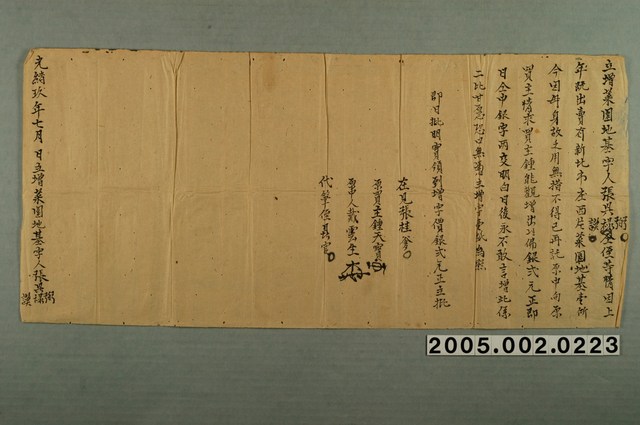 立增菜園地基字人張其
弼
謨
侄等情因上
年既出賣有新北市庄西片菜園地基壹所
今因母身故乏用無措不得已再託原中向原
買主情求買主鍾能觀增出以佛銀弍元正即
日仝中銀字兩交明白日後永不敢言增此係
二比甘愿恐口無憑立增字壹紙為照
即日批明實領到增字價銀弍元正立批
在見張桂爹
原買主鍾天寶
原中人戴雲生
代筆侄長官
光緒玖年七月 日立增菜園地基字人張其
弼
謨
2005.002.0223